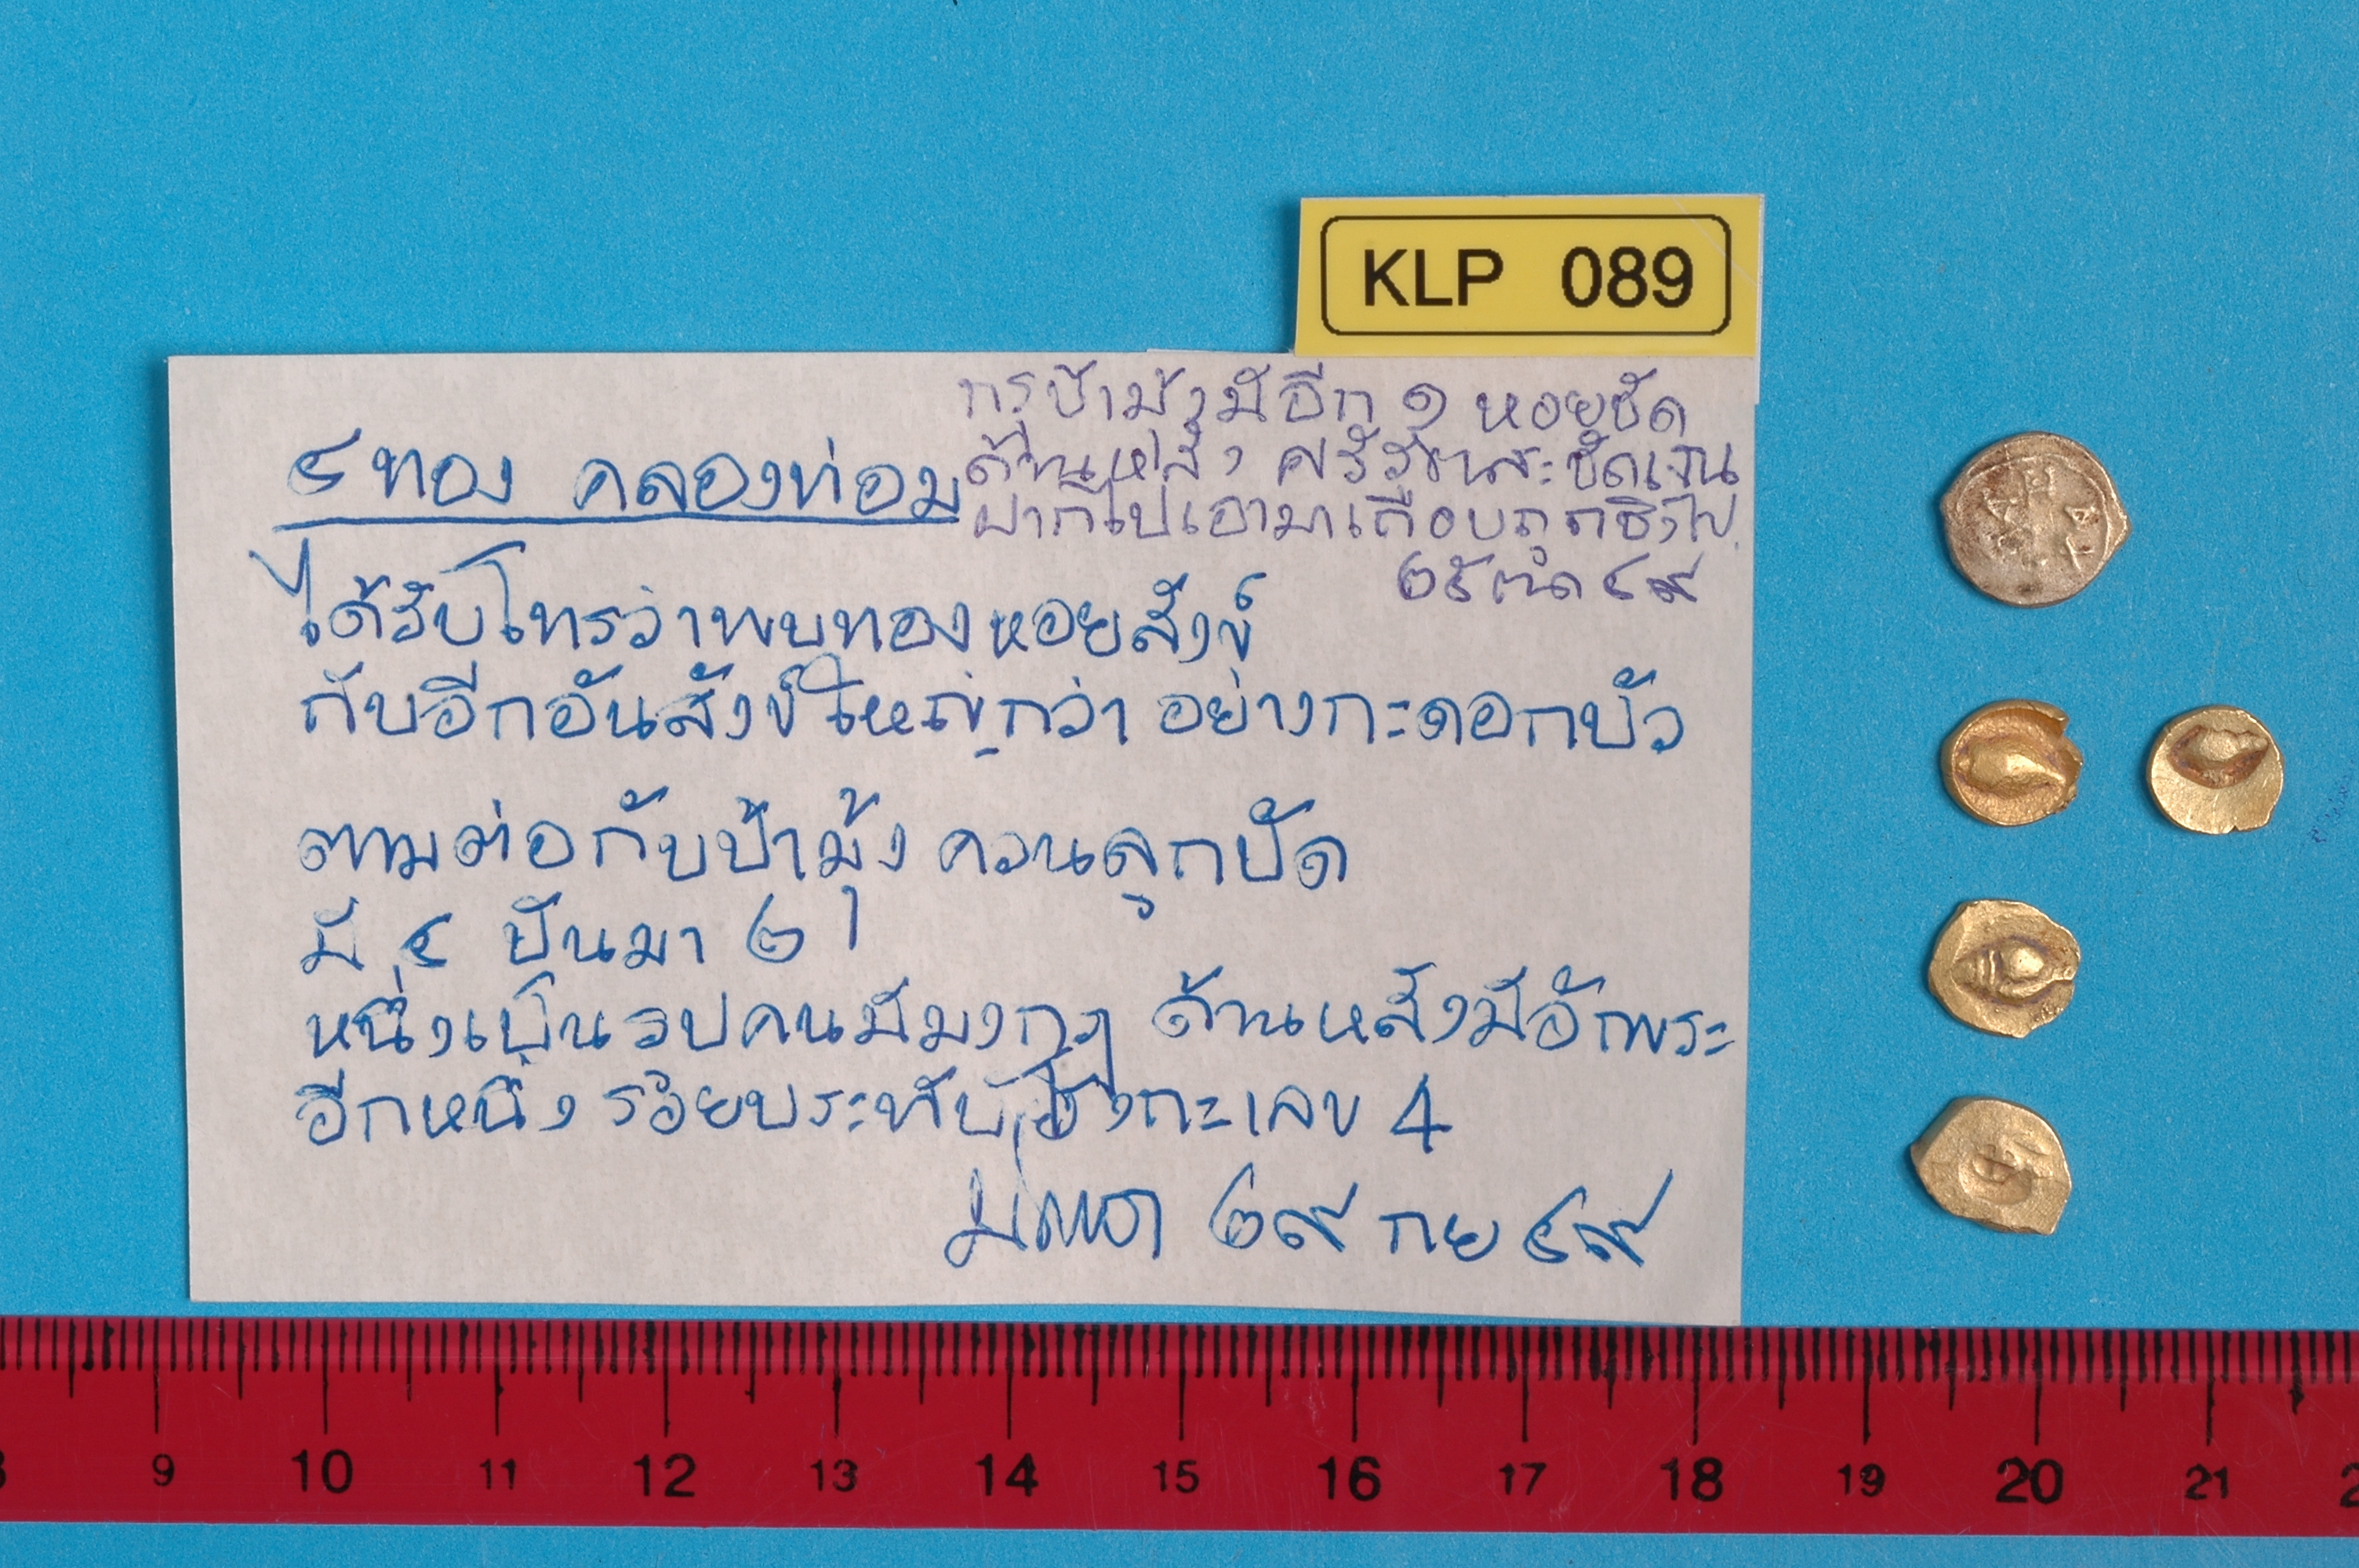 KLP 089
กรุป้ามุ้งมีอีก ๑ หอยชัด
ด้านหลัง ศรีวัตสะชัดเจน
ฝากไปเอามาเกือบถูกชิงไป
๒๕ ตค ๔๙
๔ ทอง คลองท่อม
ได้รับโทรว่าพบทองหอยสังข์
กับอีกอันสังข์ใหญ่กว่า อย่างกะดอกบัว
ตามต่อกับป้ามุ้ง ควนลูกปัด
มี ๔ ปันมา ๒
หนึ่งเป็นรูปคนมีมงกุฎ ด้านหลังมีอักพระ
อีกหนึ่ง รอยประทับ ยังกะเลข 4
๒๙ กย ๔๙
9 10 11 12 13 14 15 16 17 18 19 20 21